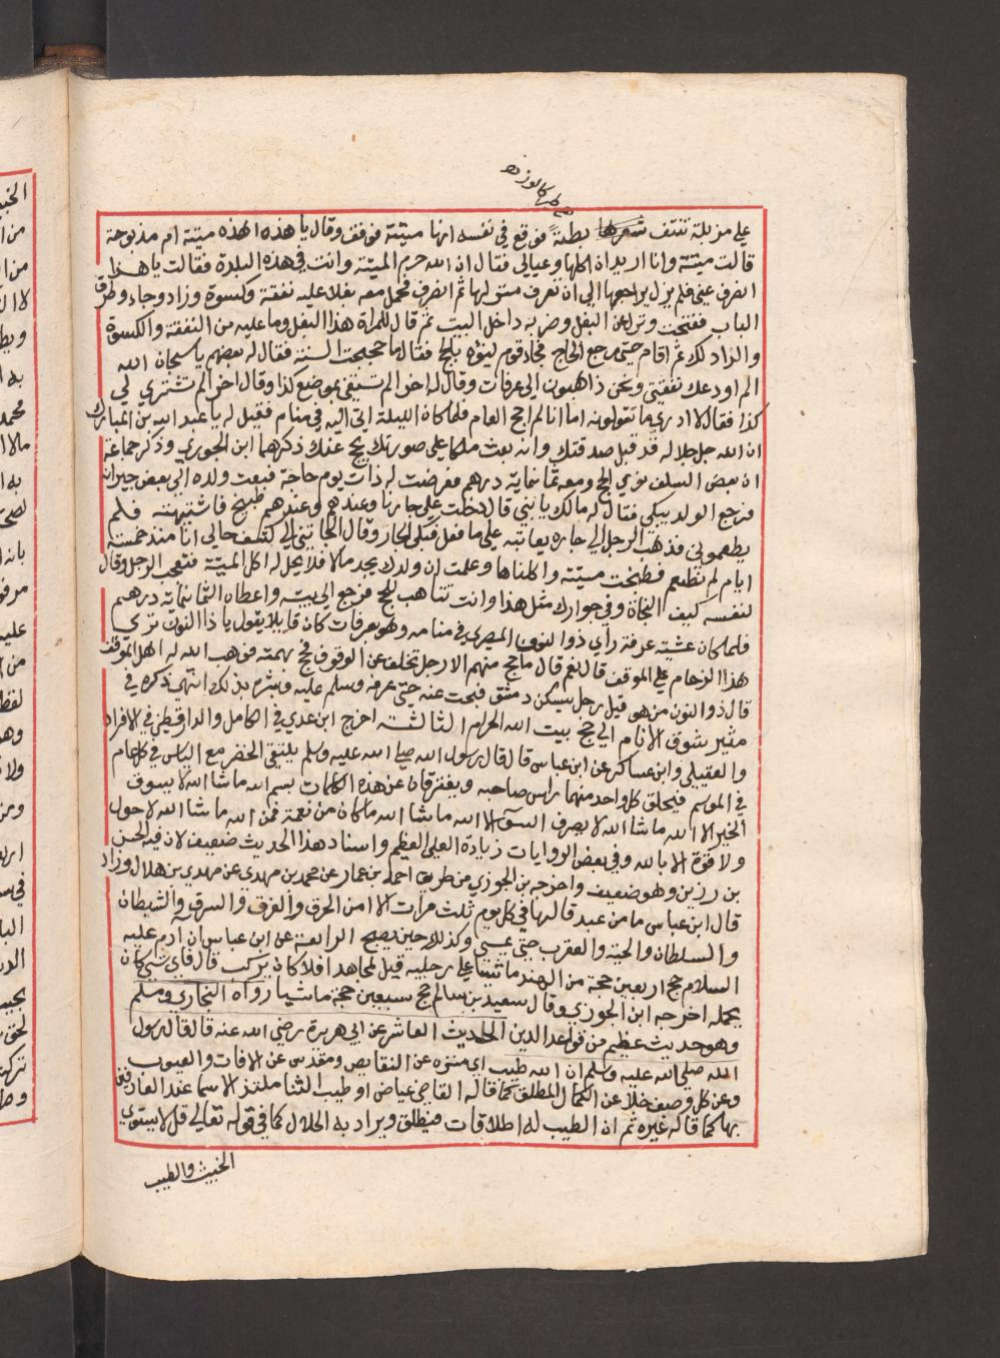 على مزبلة تنتف شعرها بطة فوقع في نفسه انها ميتة فوقف وقال يا هذه اهذه ميتة ام مذبوحة
قالت ميتة وانا اريد ان اكلها وعيالي فقال ان الله حرم الميتة وانت في هذه البلدة فقالت يا هذا
انصرف عني فلم يزل يراجعها الى ان تعرف منزلها ثم انصرف فحمل معه بغلا عليه نفقة وكسوة وزاد وجاء وطرق
الباب ففتحت ونزل عن البغل وضربه داخل البيت ثم قال للمراة هذا البغل وما عليه من النفقة والكسوة
والزاد لك ثم اقام حتى رجع الحاج فجاء قوم يهنؤه بالحج فقال ما حججت السنة فقال له بعضهم يا سبحان الله
الم اودعك نفقتي ونحن ذاهبون الى عرفات وقال له اخر الم تسقني بموضع كذا وقال اخر الم تشتري لي
كذا فقال لا ادري ما تقولونه اما انا لم احج العام فلما كان الليلة اتى اليه في منامه فقيل له يا عبد الله بن المبارك
ان الله جل جلاله قد قبل صدقتك وانه بعث ملكا على صورتك يحج عنك ذكرهما ابن الجوزي وذكر جماعة
ان بعض السلف نوى الحج ومعه ثمانماية درهم فعرضت له ذات يوم حاجة فبعث ولده الى بعض جيرانه
فرجع الولد يبكي فقال له مالك يا بني قال دخلت على جارنا وعندهم وعندهم طبيخ فاشتهيته فلم
يطعموني فذهب الرجل الى جاره يعاتبه على ما فعل فبكى الجار وقال الجاتني الى كشف حالي انا منذ خمسة
ايام لم نطعم فطبخت ميتة واكلناها وعلمت ان ولدك يجد مالا فلا يحل له اكل الميتة فتعجب الرجل وقال
لنفسه كيف النجاة وفي جوارك مثل هذا وانت تتاهب للحج فرجع الى بيته واعطاه الثمانماية درهم
فلما كان عشية عرفة رأى ذو النون المصري في منامه وهو بعرفات كان قايلا يقول يا ذا النون ترى
هذا الزحام على الموقف قال نعم قال ما حج منهم الا رجل تخلف عن الوقوف فحج بهمته فوهب الله له اهل الموقف
قال ذو النون من هو قيل رجل يسكن دمشق فبحث عنه حتى عرفه وسلم عليه وبشره بذلك انتهى ذكره في
مثير شوق الانام الى حج بيت الله الحرام الثالثة اخرج ابن عدي في الكامل والدارقطني في الافراد
والعقيلي وابن عساكر عن ابن عباس قال قال رسول الله صلى الله عليه وسلم يلتقي الخضر مع الياس في كل عام
في الموسم فيحلق كل واحد منهما راس صاحبه ويفترقان عن هذه الكلمات بسم الله ماشا الله لا يسوق
الخير الا الله ماشا الله لا يصرف السوء الا الله ماشا الله ما كان من نعمة فمن الله ماشا الله لا حول
ولا قوة الا بالله وفي بعض الروايات زيادة العلي العظيم واسناد هذا الحديث ضعيف لان فيه الحسن
بن رزين وهو ضعيف واخرجه بن الجوزي من طريق احمد بن عمار عن محمد بن مهدي عن مهدي بن هلال وزاد
قال ابن عباس ما من عبد قالها في كل يوم ثلث مرات الا امن الحرق والغرق والسرق والشيطان
والسلطان والحية والعقرب حتى يمسي وكذلك حين يصبح الرابعة عن ابن عباس ان آدم عليه
السلام حج اربعين حجة من الهند ماشيا على رجليه قيل لمجاهد افلا كان يركب قال فاي شي كان
يحمله اخرجه ابن الجوزي وقال سعيد بن سالم حج سبعين حجة ماشيا رواه البخاري ومسلم
وهو حديث عظيم من قواعد الدين الحديث العاشر عن ابي هريرة رضي الله عنه قال قال رسول
الله صلى الله عليه وسلم ان الله طيب اي منزه عن النقايص ومقدس عن الافات والعيوب
وعن كل وصف خلا عن الكمال المطلق كما قاله القاضي عياض او طيب الثنا ملتذ الاسما عند العارفين
بها كما قاله غيره ثم ان الطيب له اطلاقات فيطلق ويراد به الحلال كما في قوله تعالى قل لا يستوي
الخبيث والطيب